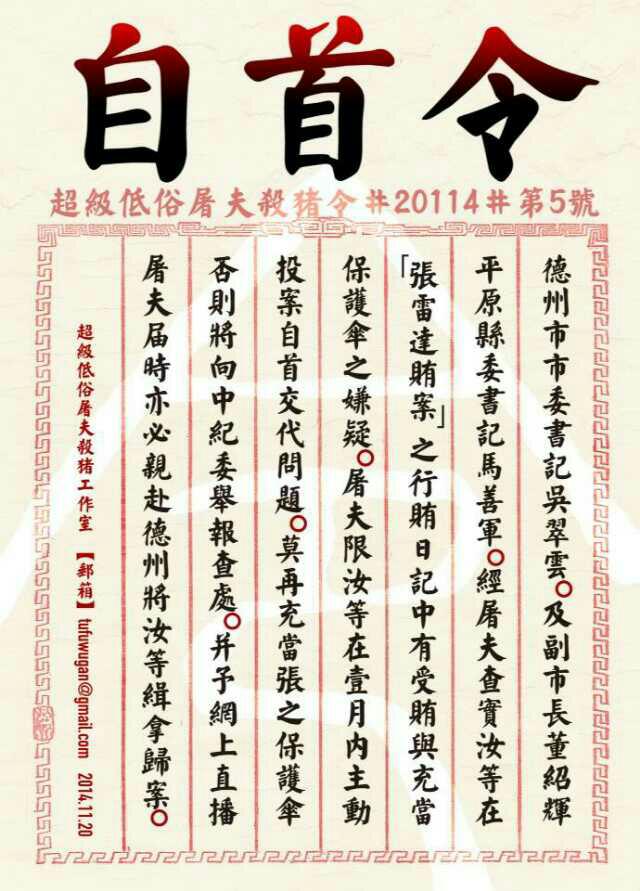 自首令
超級低俗屠夫殺豬令#20114#第5號
德州市市委書記吳翠雲。及副市長董紹輝
平原縣委書記馬善軍。經屠夫查實汝等在
「張雷達賄案」之行賄日記中有受賄與充當
保護傘之嫌疑。屠夫限汝等在壹月内主動
投案自首交代問題。莫再充當張之保護傘
否則將向中紀委舉報查處。并予網上直播
屠夫届時亦必親赴德州將汝等緝拿歸案。
超級低俗屠夫殺豬工作室 【郵箱】 tufuwugan@gmail.com 2014.11.20